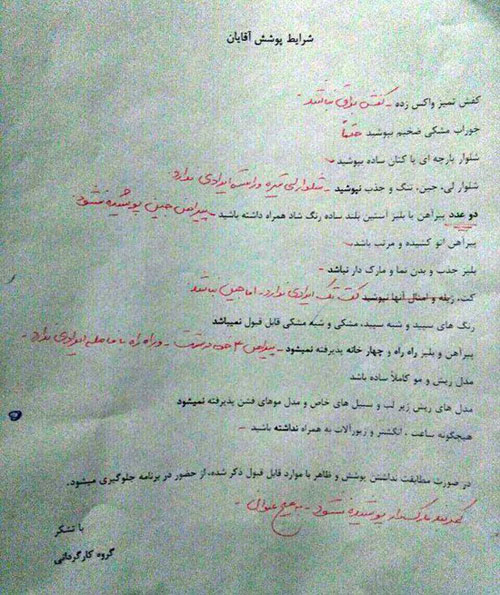 شرایط پوشش آقایان
کفش تمیز واکس زده - کفش براق نباشد.
جوراب مشکی ضخیم بپوشید حتماً
شلوار پارچه ای یا کتان ساده بپوشید -
شلوار لی، جین، تنگ و جذب نپوشید - شلوار لی تیره و راسته ایرادی ندارد
دو عدد پیراهن یا بلیز آستین بلند ساده رنگ شاد همراه داشته باشید - پیراهن جین پوشیده نشود
پیراهن اتو کشیده و مرتب باشد.
بلیز جذب و بدن نما و مارک دار نباشد
کت، ژیله و امثال آنها نپوشید کت تک ایرادی ندارد، اما جین نباشد
رنگ های سپید و شبه سپید، مشکی و شبه مشکی قابل قبول نمیباشد
پیراهن و بلیز راه راه و چهار خانه پذیرفته نمیشود - پیراهن ۴ خانه درشت - و راه راه با فاصله ایرادی ندارد -
مدل ریش و مو کاملاً ساده باشد
مدل های ریش زیر لب و سبیل های خاص و مدل موهای فشن پذیرفته نمیشود
هیچگونه ساعت ، انگشتر و زیورآلات به همراه نداشته باشید -
در صورت مطابقت نداشتن پوشش و ظاهر با موارد قابل قبول ذکر شده، از حضور در برنامه جلوگیری میشود.
کمربند مارکدار پوشیده نشود - به هیچ عنوان -
با تشکر
گروه کارگردانی